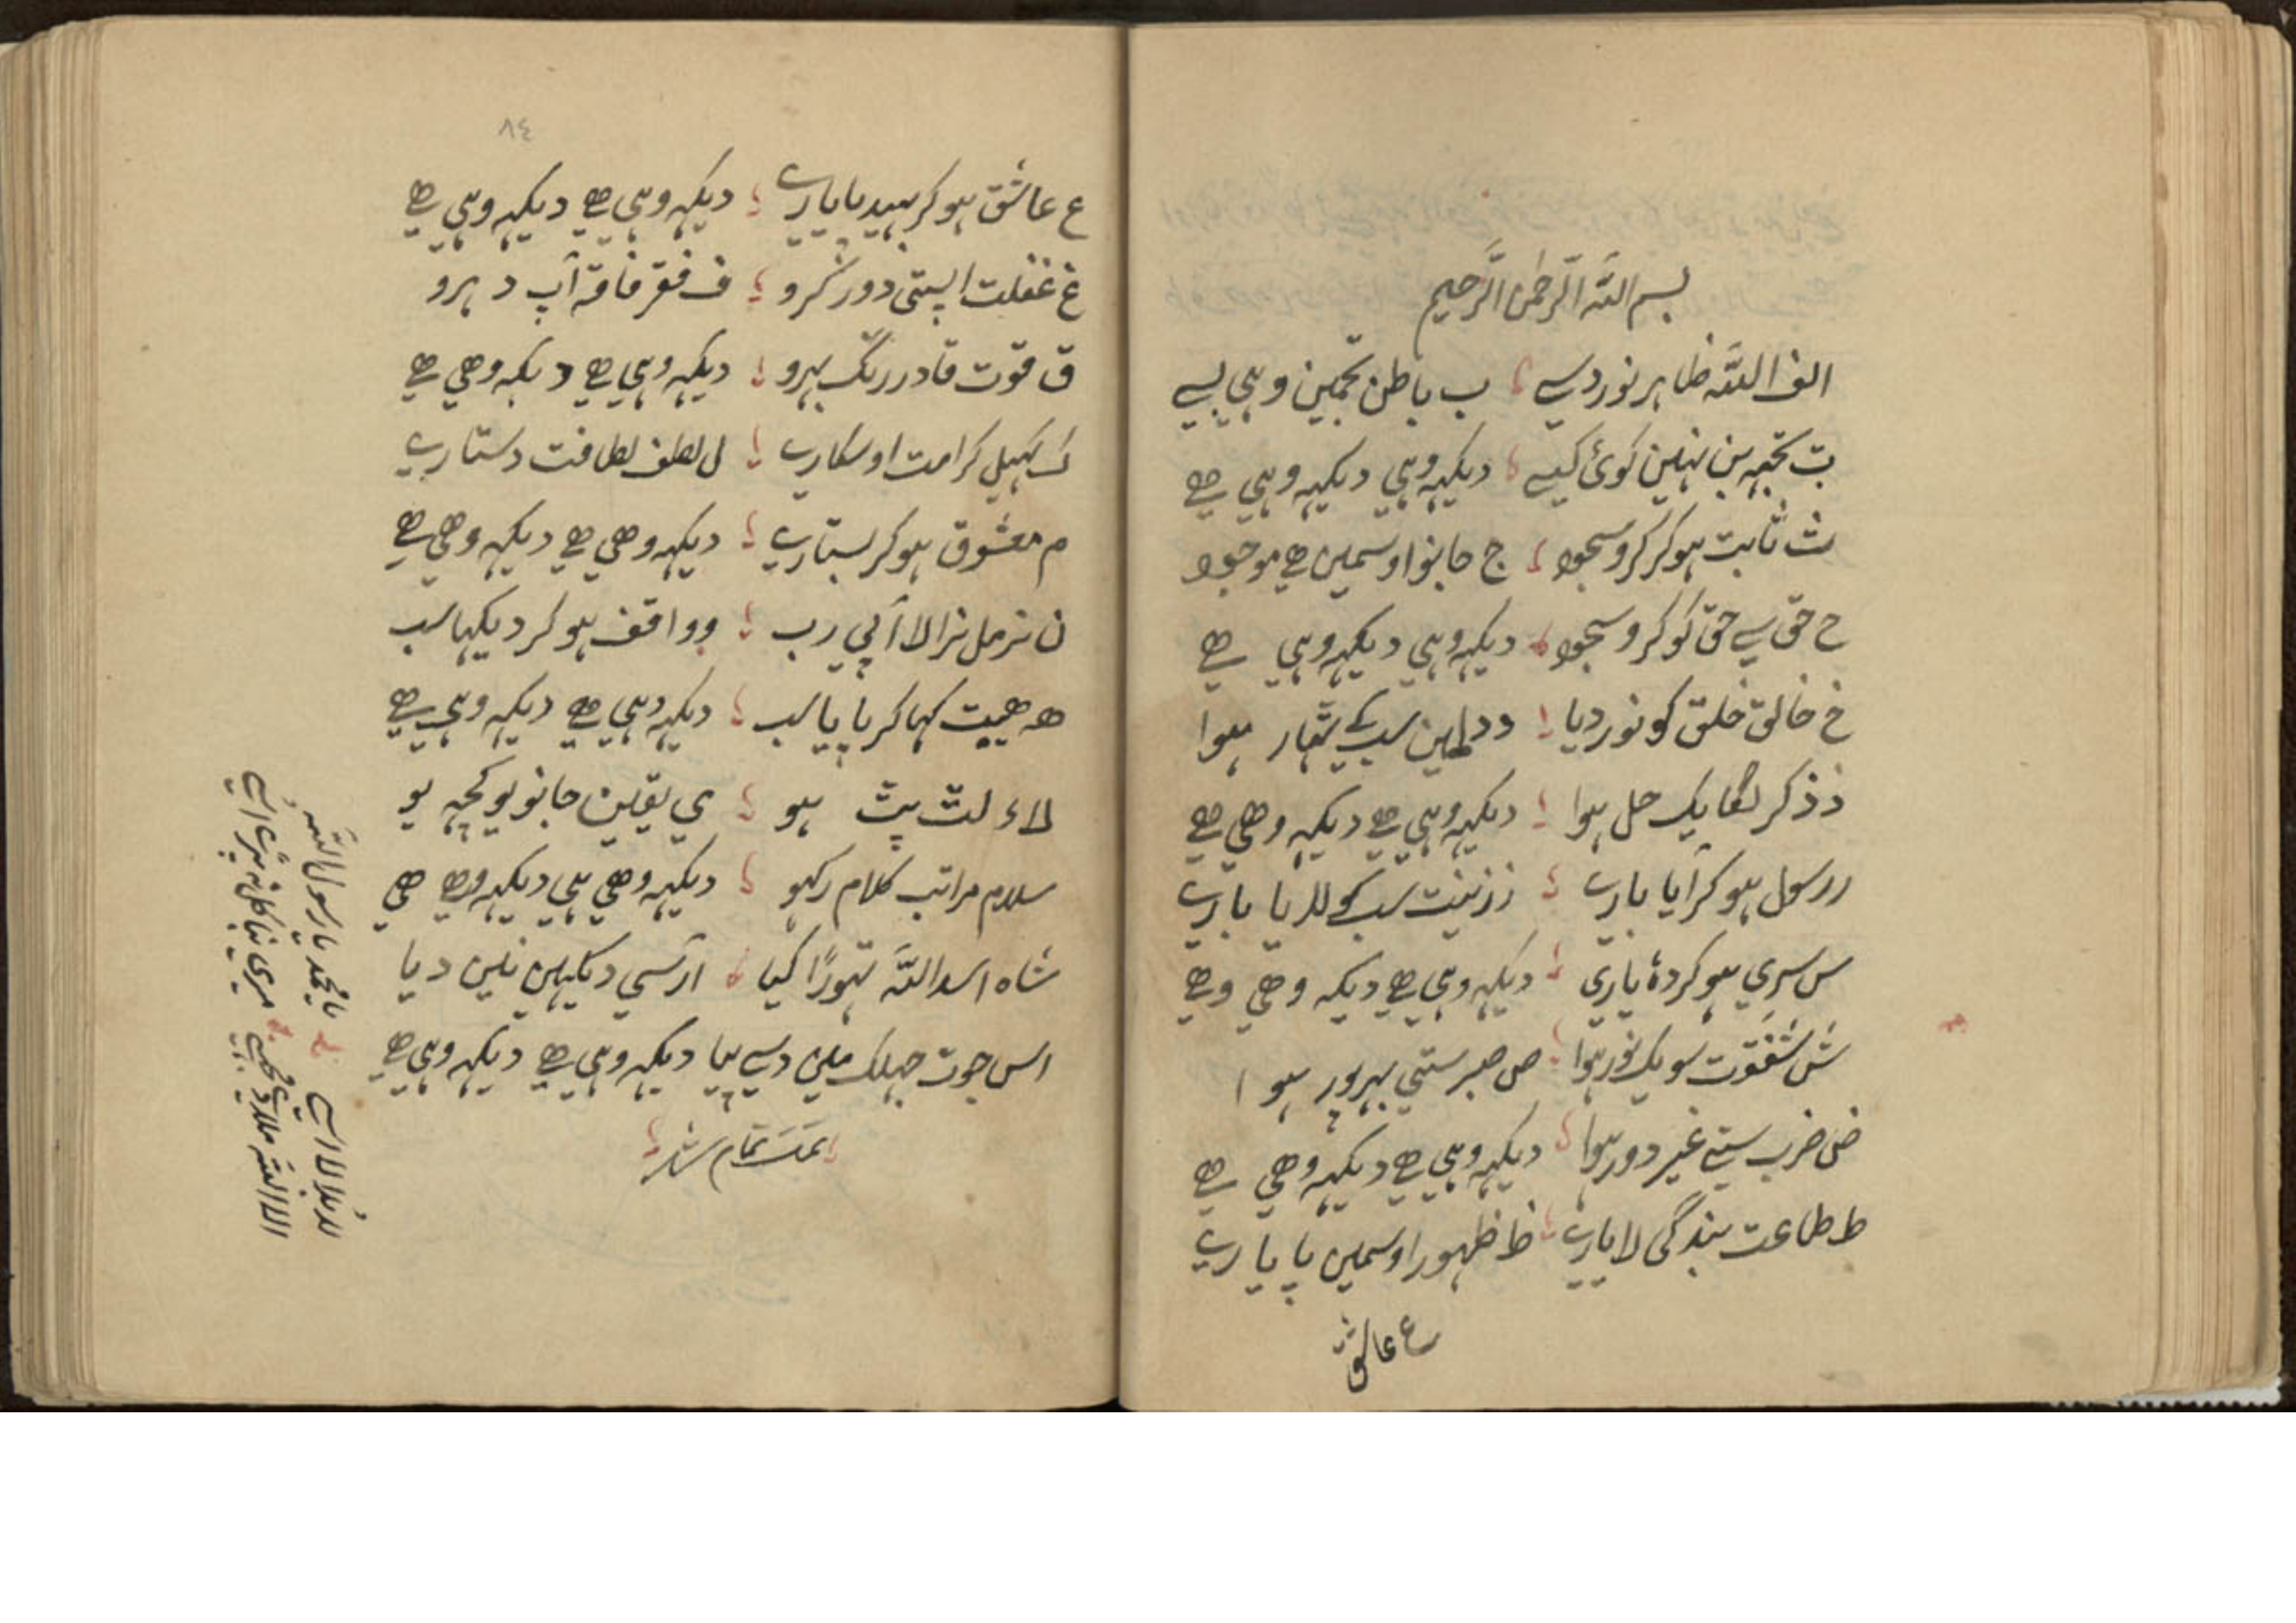 بسم الله الرحمن الرحيم
الف الله ظاہر نور دسے ب باطن تجمین وہی بسے
ت تجہہ بن نہین کوئی کیسے دیکہہ وہی دیکہہ وہی ہے
ث ثابت ہو کر کرو سجود ج جانو اوسمین ہے موجود
ح حق سے حق کو کرو سجود دیکہہ وہی دیکہہ وہی ہے
خ خالق خلق کو نور دیا د سب کے ہوا
ذ ذکر لگا یک حل ہوا دیکہہ وہی ہے دیکہہ وهي ہے
ر رسول ہو کر آیا یارے ز زینت سب کو للریا یارے
س سري ہو کر یاری دیکہہ وہی ہے دیکہہ وهي وہے
ش شفقوت سو یک نور ہوا ص صبر ستي بہرپور ہوا
ض ضرب ستے غیر دور ہوا دیکہہ وہی ہے دیکہہ وهي ہے
ط طاعت بندگی لا یارے ظ ظہور اوسمین پایارے
ع عاشق
٨٤
ع عاشق ہو کر بہید پایارے دیکہہ وہی ہے دیکہہ وہی ہے
غ غفلت اپستی دور کرو ف فقر فاقہ آپ دہرو
ق قوت قادر رنگ بہرو دیکہہ وہی ہے دیکہہ وهي ہے
ک کہیلی کرامت اوسکارے ل لطف لطافت دستارے
م معشوق ہو کر بستارے دیکہہ وهي ہے دیکہہ وهي ہے
ن نرمل نرالا آپي رب و واقف ہو کر دیکہا سب
ھ هميت کہا کر پایا سب دیکہہ وہی ہے دیکہہ وہی ہے
لاء لٹ پٹ ہو ي یقین جانو یو کچہہ یو
سلام مراتب کلام رکہو دیکہہ وهي ہی دیکہہ وہے هي
شاہ اسد اللہ تہوڑا کیا آرسی دیکہین نین دیا
اس جوت جہلک ملین دسے پیا دیکہہ وہی ہے دیکہہ وہی ہے
تمت تمام شد
یا محمد یا رسول اللہ